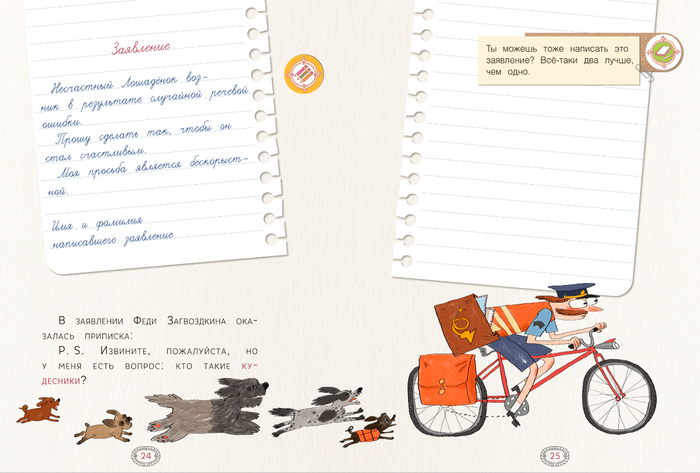 Заявление
Несчастный Лошадёнок воз-
ник в результате случайной речевой
ошибки.
Прошу сделать так, чтобы он
стал счастливым.
Моя просьба является бескорыст-
ной.
Имя и фамилия
написавшего заявление
В заявлении Феди Загвоздкина ока-
залась приписка:
P. S. Извините, пожалуйста, но
у меня есть вопрос: кто такие ку-
десники?
24
Ты можешь тоже написать это
заявление? Всё-таки два лучше,
чем одно.
25